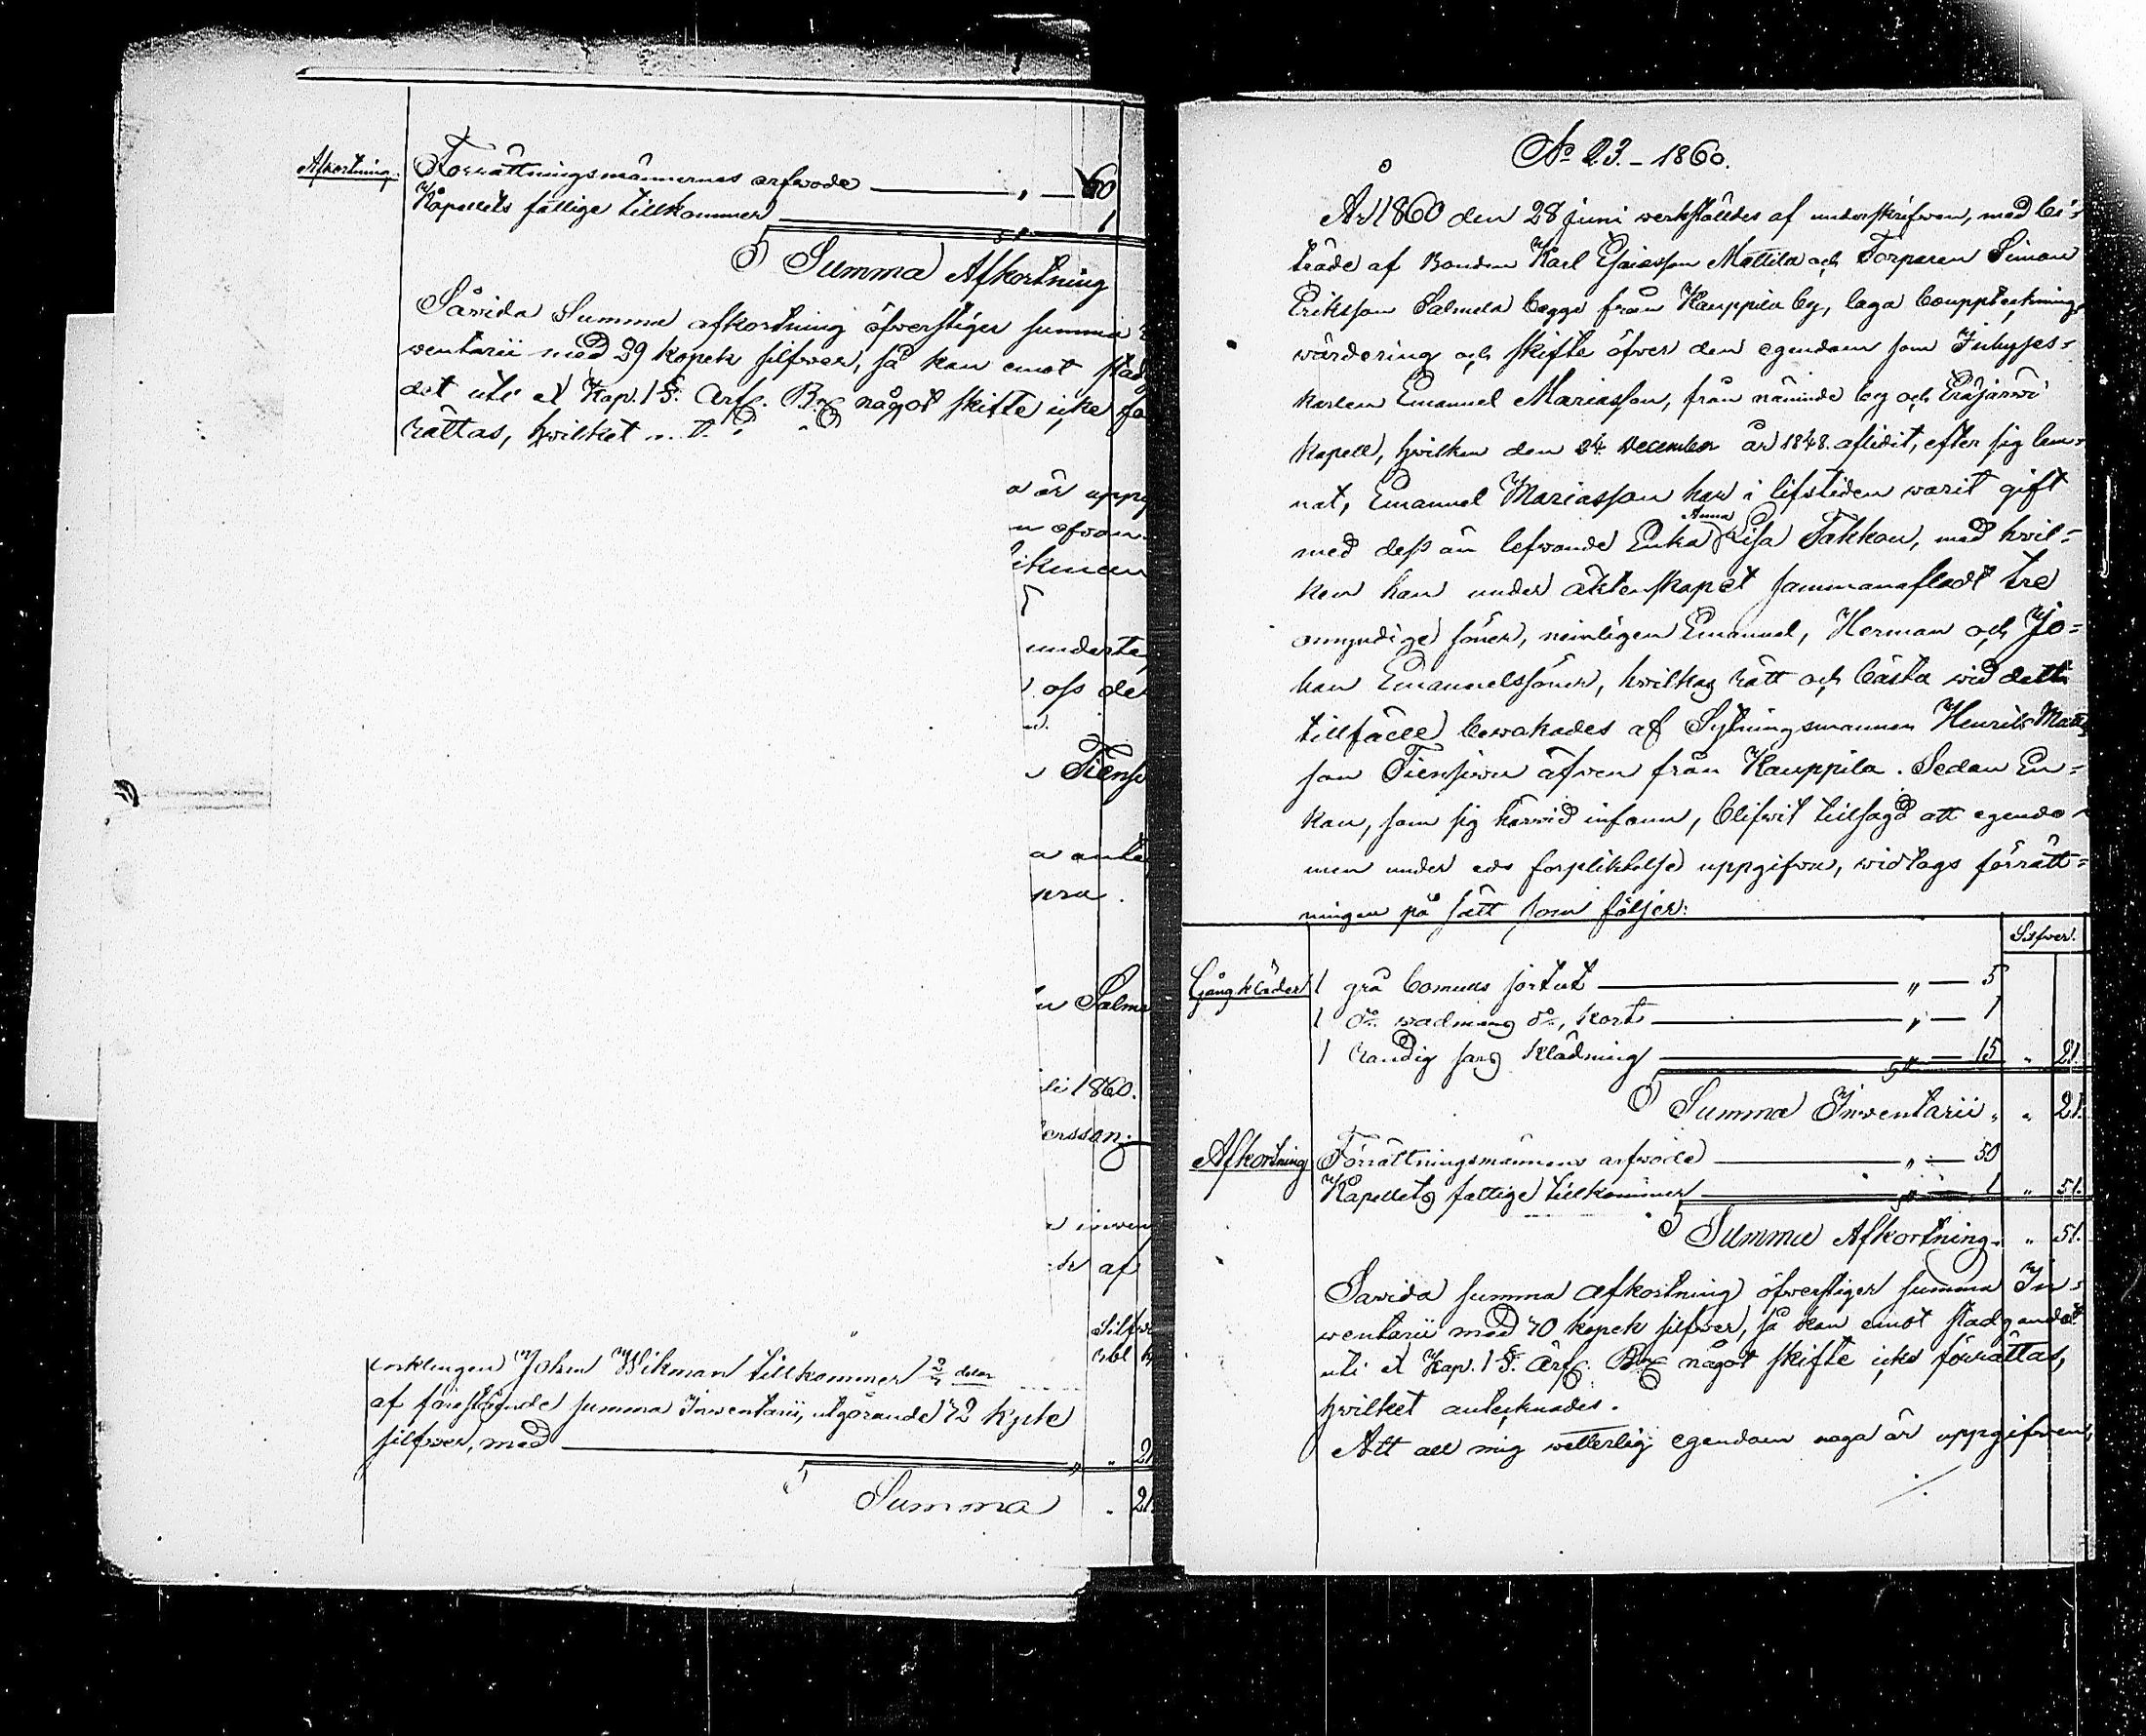 Afkortning. Förrättningsmännernes arfwode „ — 60
Kapellets fattige tillkommer „ 1
Summa Afkortning
Såvida Summa afkortning öfverstiger summa
ventarii med 29 kopek silfwer, så kan emot stad
det uti 21 Kap. 1 §. Ärf. B. något skifte icke fö
rättas, hvilket
a är uppg
n ofvan
ikman
underte
oss de
Tiensu
a ante
pra.
n Salme
li 1860.
ersson.
a inven
af
Silfwe
Rbl k
Johan Wikman tillkommer 2/7 delar
af föreståênde summa Inventarii, utgörande 72 kpk
silfwer, med „ „ 21
Summa „ 21
No 23. - 1860.
År 1860 den 28 juni werkställdes af underskrifwen, med bi-
träde af Bonden Karl Esaiasson Mattila och Torparen Simon
Eriksson Salmela begge från Kauppila by, laga bouppteckning,
värdering och skifte öfver den egendom som Inhyses-
karlen Emanuel Mariasson, från nämnde by och Eräjärwi
Kapell, hvilken den 24 December år 1848 aflidit, efter sig lem-
nat, Emanuel Mariasson har i lifstiden warit gift
Anna
med dess än lefwande Enka Lisa Takkau, med hvil-
ken han under äktenskapet sammanaflat tre
omyndige söner, nemligen Emanuel, Herman och Jo-
han Emanuelssöner, hvilkas rätt och bästa vid detta
tillfälle bewakades af Sytningsmannen Henrik Matts
son Tiensuu äfven från Kauppila. Sedan En-
kan, som sig härvid infann, blifwit tillsagd att egendo-
men under eds förpliktelse uppgifva, vidtogs förrätt-
ningen på sätt som följer:
Silfwer.
Gångkläder 1 grå bomulls sortut „ — 5
1 do. wadmans do., kort „ — 1
1 randig sars klädning „ — 15 „ 21.
Summa Inventarii „ „ 21.
Afkortning Förrättningsmännens arfwode „ — 50
Kapellets fattige tillkommer „ — 1 „ 51.
Summa Afkortning. „ 51.
Såvida summa afkortning öfverstiger summa In-
ventarii med 70 kopek silfwer, så kan emot stadgandet
uti 21 Kap. 1 §. Ärf. B. något skifte icke förrättas,
hvilket antecknades.
Att all mig vetterlig egendom noga är uppgifwen,